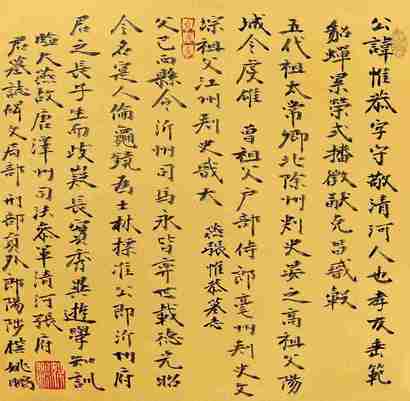 公諱惟恭字守敬清河人也孝友垂範
貂蟬累榮式播徽猷克昌盛穀
五代祖太常卿北徐州刺史英之高祖父陽
城令慶雄 曾祖父戶部侍郎亳州刺史文
琮祖父江州刺史盛大
燕張惟恭墓志
父巳西縣令沂州司馬永皆率世載德元昭
令名寔人倫龜鏡為士林標准公即沂州府
君之長子生而歧嶷長實齊莊遊學知訓
臨大燕故唐澤州司法參軍清河張府
君墓誌銘文局部 刑部員外郎陽陟撰